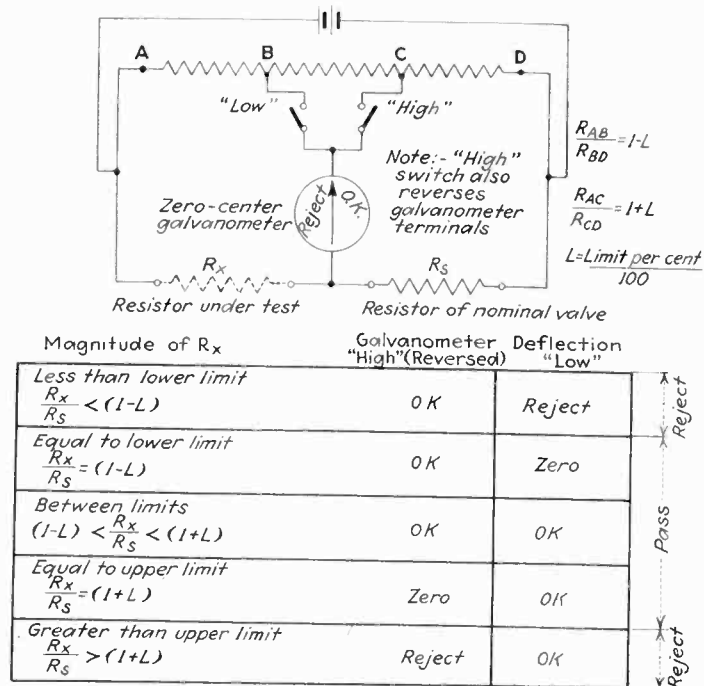 A B C D
"Low" "High"
R_AB/R_BD = 1-L
Note:- "High"
switch also
reverses
galvanometer
terminals
R_AC/R_CD = 1+L
Zero-center
galvanometer
Reject O.K.
L = Limit per cent/100
Rx Rs
Resistor under test Resistor of nominal valve
Magnitude of Rx Galvanometer Deflection
"High"(Reversed) "Low"
Less than lower limit
Rx/Rs < (1-L) OK Reject
Reject
Equal to lower limit
Rx/Rs = (1-L) OK Zero
Between limits
(1-L) < Rx/Rs < (1+L) OK OK
Pass
Equal to upper limit
Rx/Rs = (1+L) Zero OK
Greater than upper limit
Rx/Rs > (1+L) Reject OK
Reject